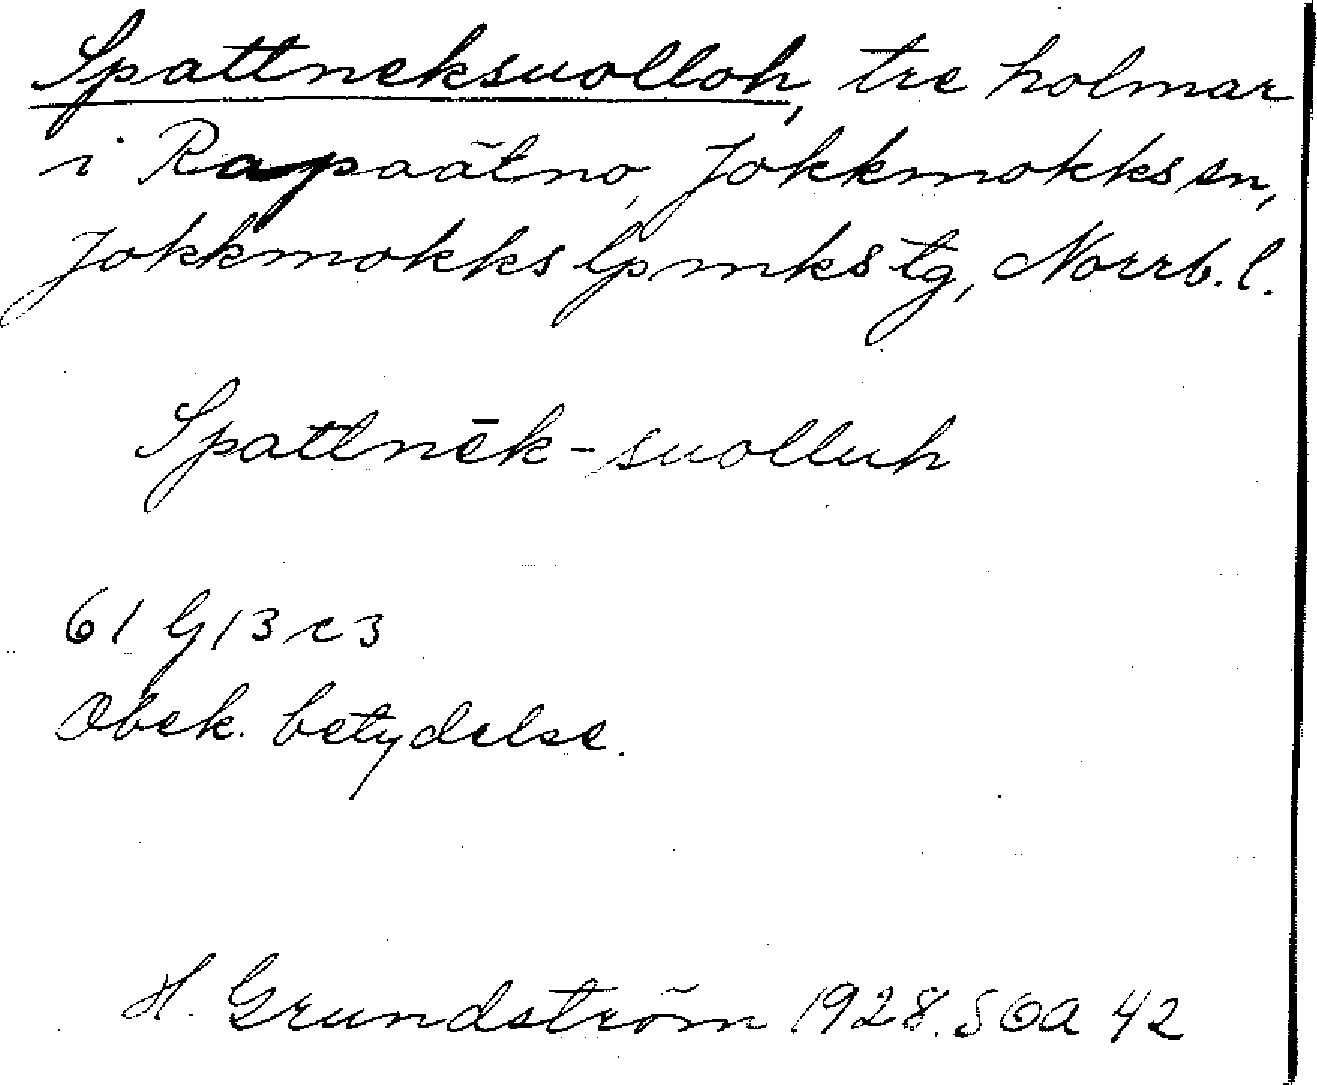 Spattneksuolloh, tre holmar
i Rapaätno, Jokkmokks sn,
Jokkmokks lpmks tg, Norrb. l.
Spattnēk-suolluh
61 G 13 c 3
Obek. betydelse.
H. Grundström 1928. SOA 42